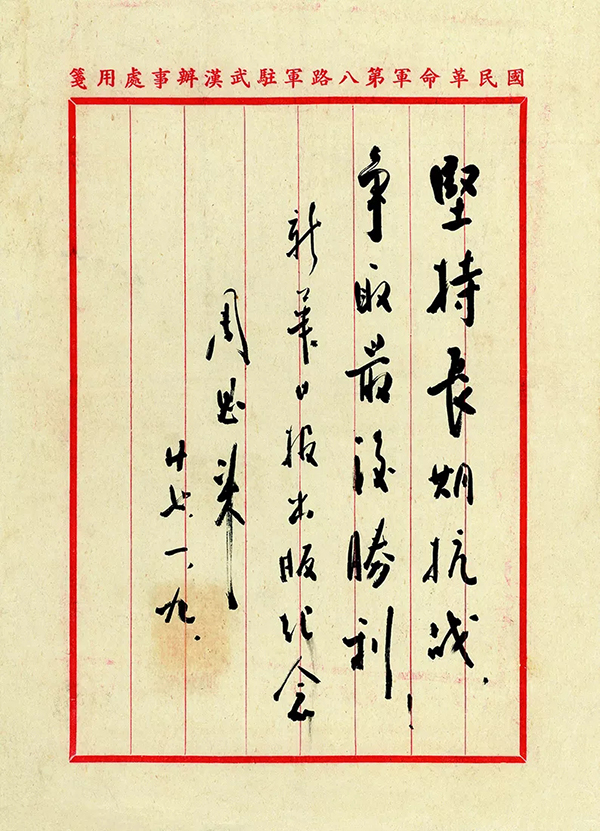 國民革命軍第八路軍駐武漢辦事處用箋
堅持長期抗战.
争取最後勝利!
新華日报出版纪念
周恩来
廿七.一.九.